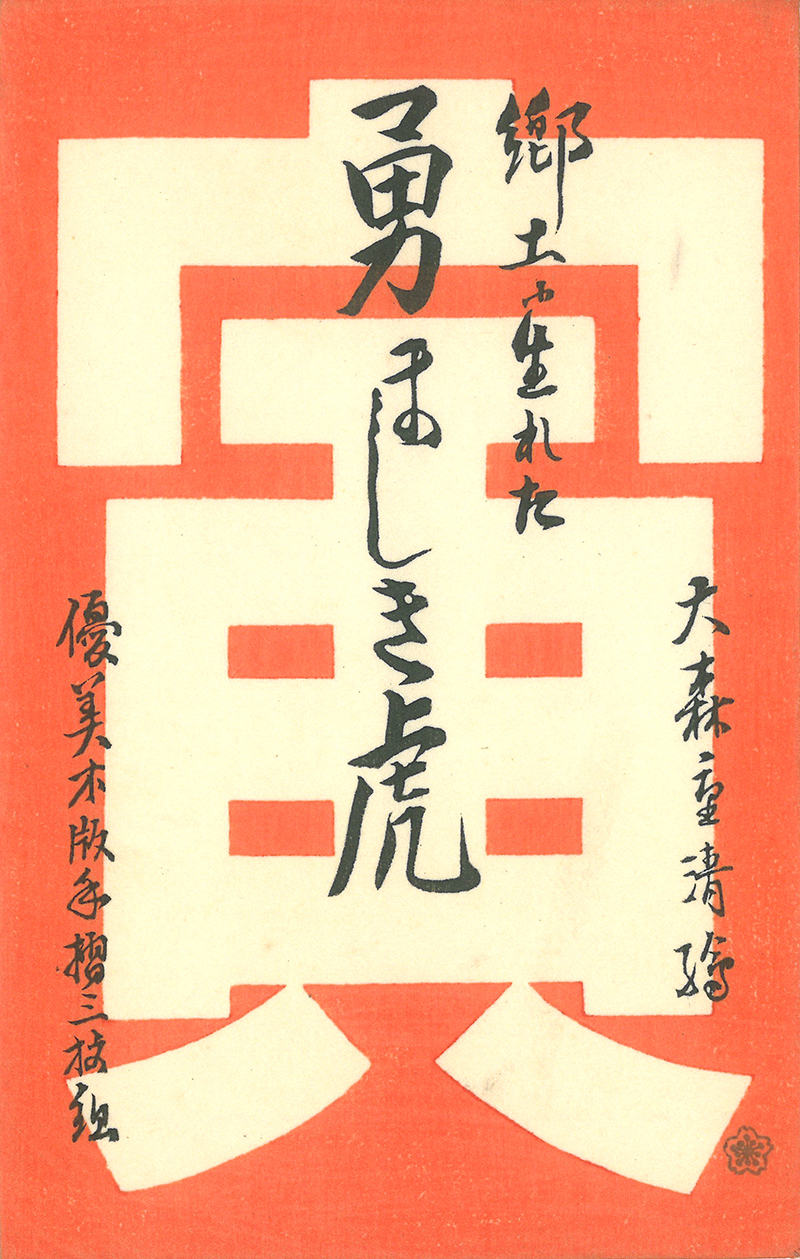 寅
大森重清繪
郷土に生れた
勇ましき虎
優美木版手摺三枚組